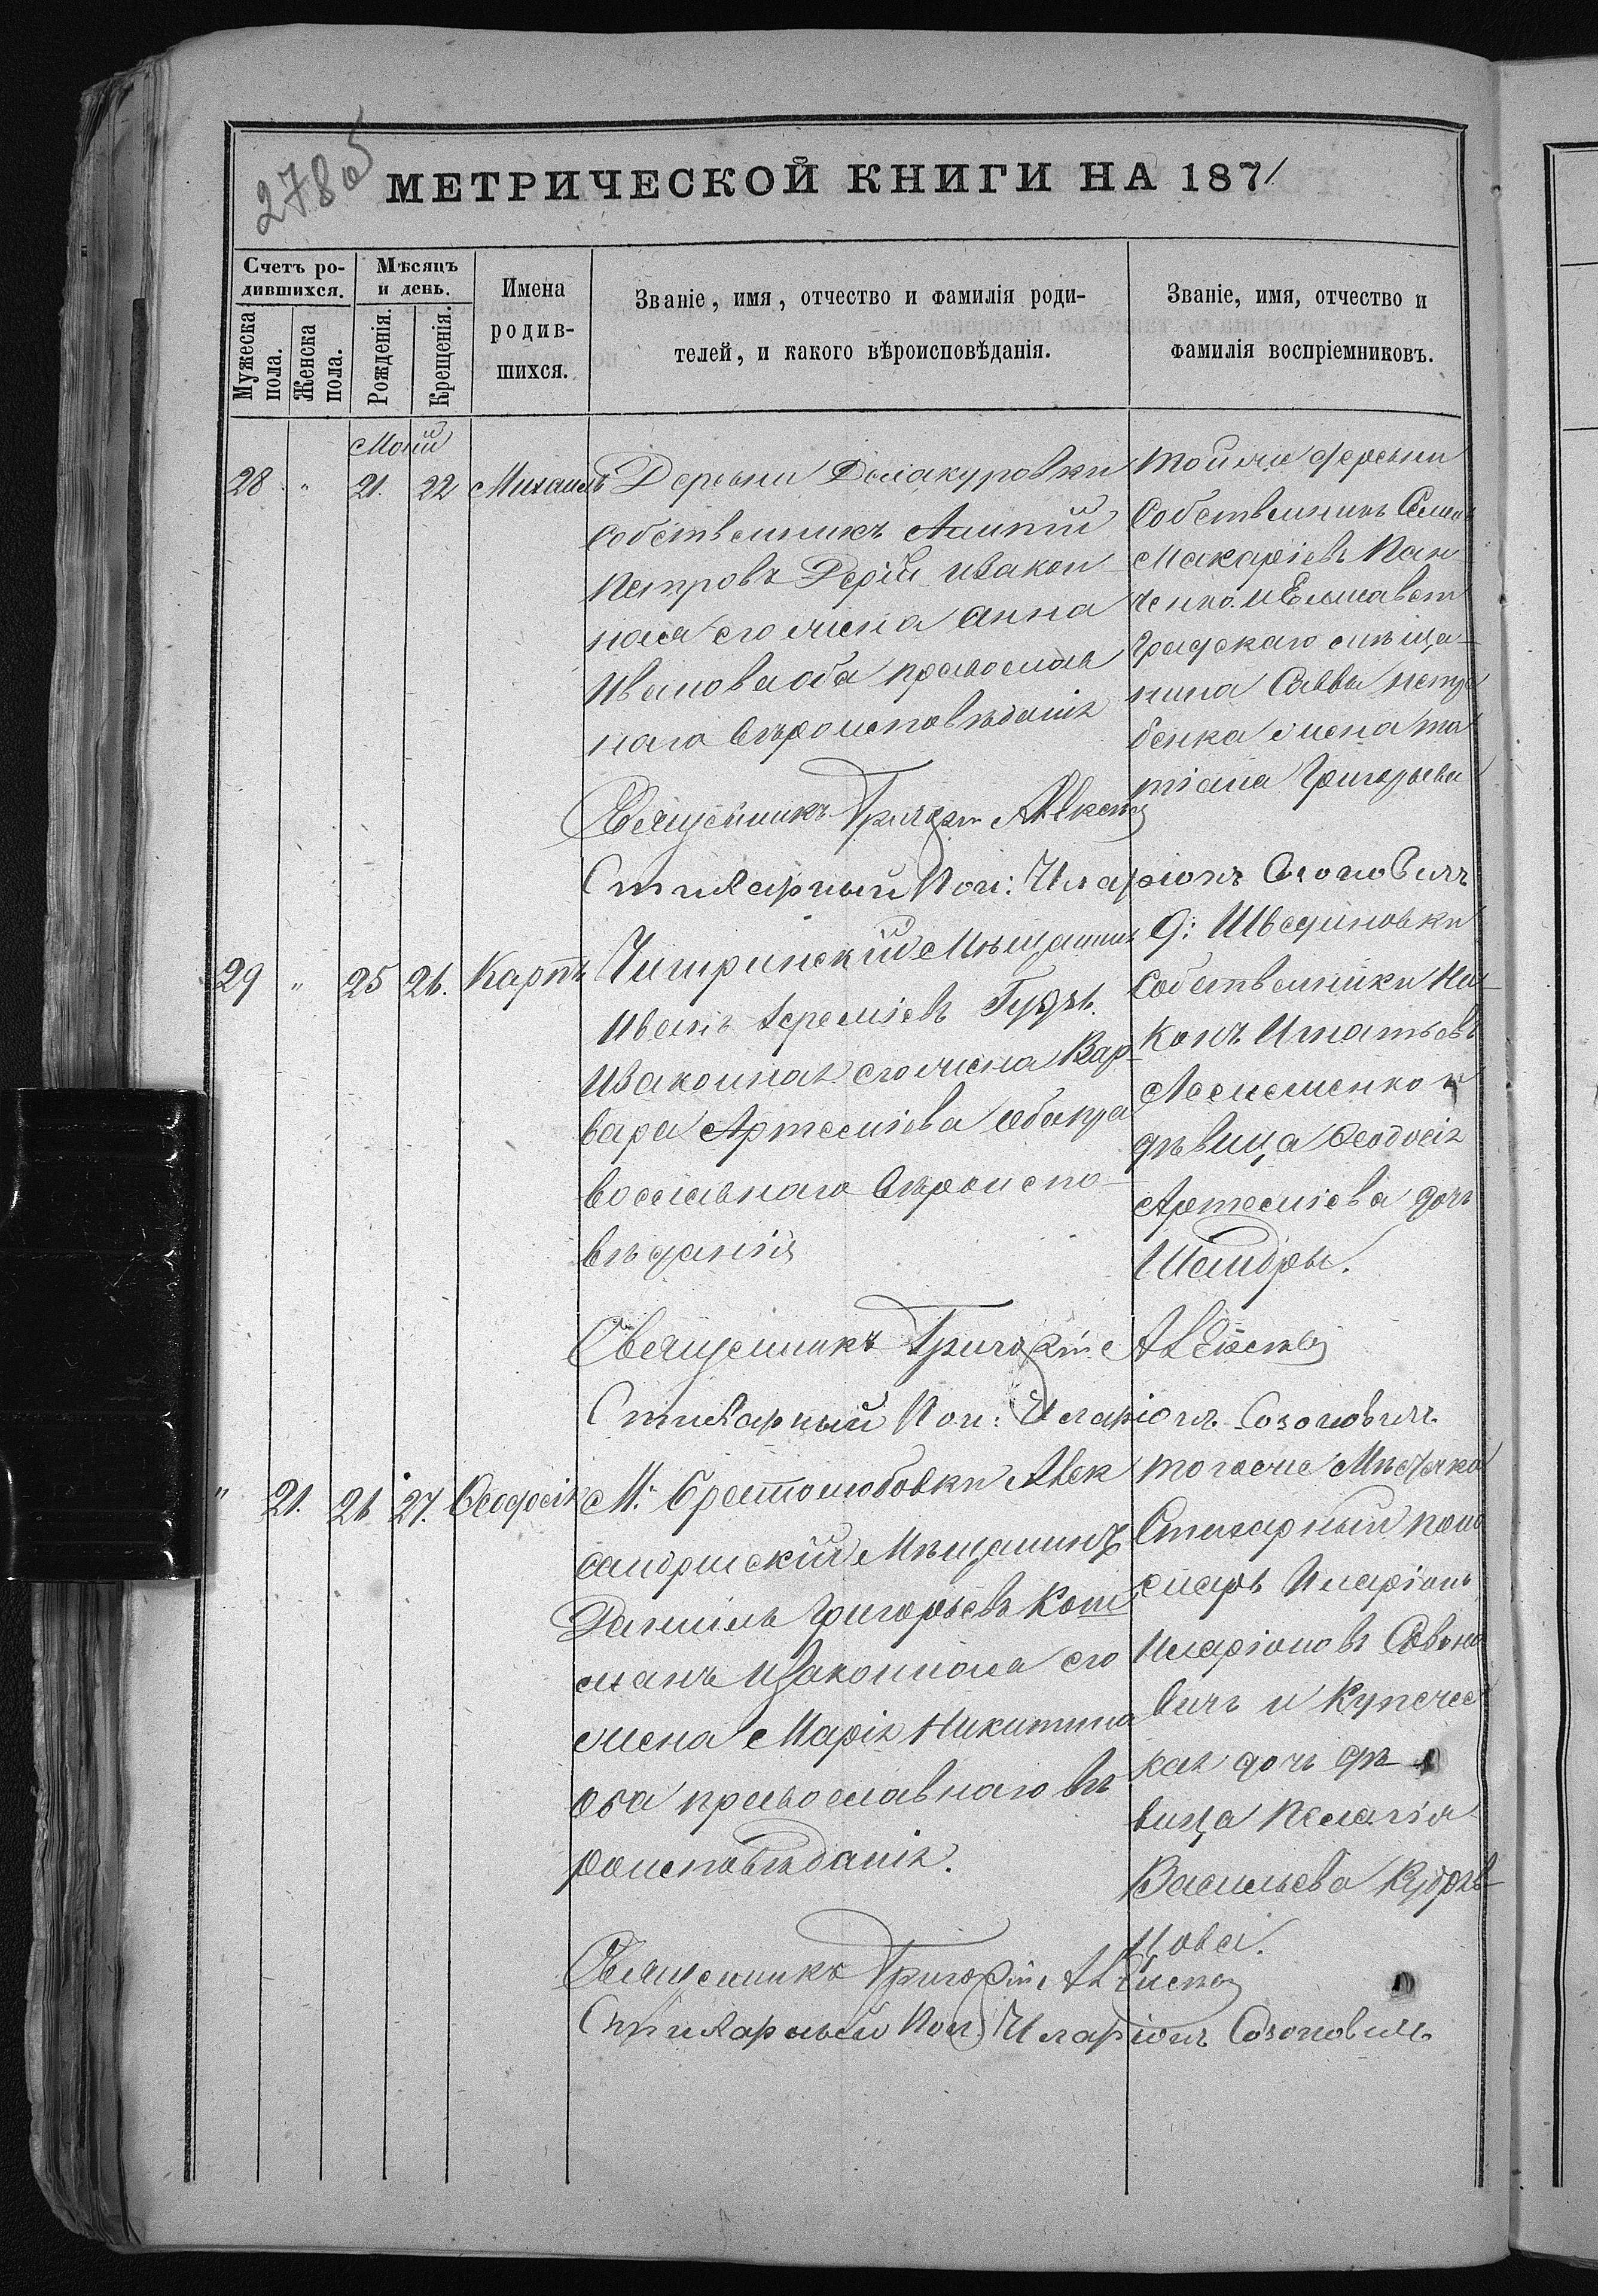 278об
МЕТРИЧЕСКОЙ КНИГИ НА 1871
Счетъ ро-
дившихся.
Мужеска
пола.
Женска
пола.
Мѣсяцъ
и день.
Рожденія.
Крещенія.
Имена
родив-
шихся.
Званіе, имя, отчество и фамилія роди-
телей, и какого вѣроисповѣданія.
Званіе, имя, отчество и
фамилія воспріемниковъ.
Маій
28 " 21. 22 Михаилъ
Деревни
собственникъ
Петровъ изакон
ная его жена Анна
Иванова оба православ
наго вѣроисповѣданія
тойже деревни
Собственникъ Семенъ
Макаріевъ Пан
ченко и Елисавет
градскаго мѣща-
нина Саввы
жена Та
тіана Григорьева
Священникъ Григорій
Стихарный Пон: Иларіонъ Созоновичъ
29 " 25 26. Карпъ
Чигиринскій Мѣщанинъ
Иванъ Іереміевъ Гудзь.
изаконная его жена Вар-
вара Артеміева оба пра
вославнаго вѣроиспо-
вѣданія
д:
Собственники Ни-
конъ Игнатьевъ
и
дѣвица Ѳеодосія
Артеміева дочь
Шандры.
Священникъ Григорій
Стихарный Пон: Иларіонъ Созоновичъ
" 21. 26 27. Ѳеодосія
М. Алек
сандрійскій Мѣщанинъ
Даніилъ Григорьевъ Кот
манъ изаконная его
жена Марія Никитина
Оба православнаго вѣ
роисповѣданія.
тогоже Мѣстечка
Стихарный поно
марь Иларіонъ
Иларіоновъ Созоно
вичъ и Купечес
кая дочь дѣ-
вица Пелагія
Васильева Кудряв-
цова.
Священникъ Григорій
Стихарный Пон. Иларіонъ Созоновичъ